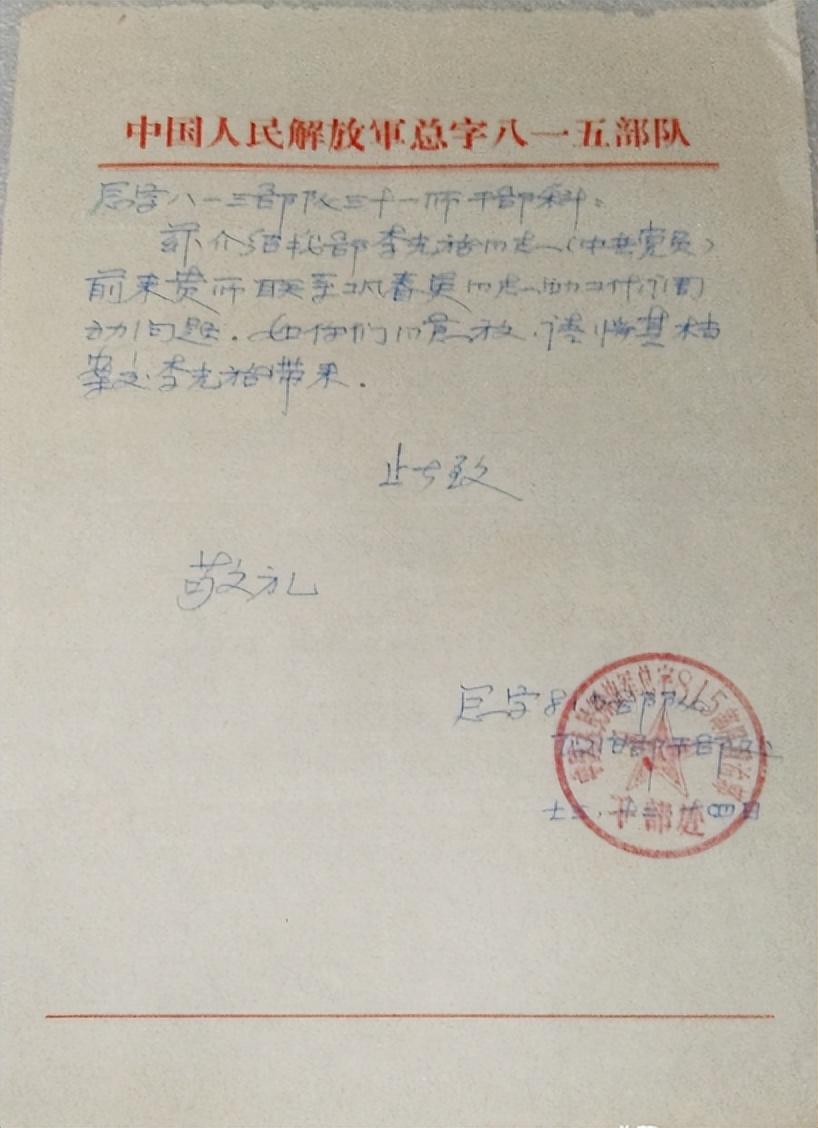 中国人民解放军总字八一五部队
总字八一三部队三十一师干部科:
兹介绍我部李光裕同志(中共党员)
前来贵师联系巩春英同志的工作调
动问题.如你们同意放,请将其档
案交李光裕带来.
此致
敬礼
总字815部队
政治部干部处
中国人民解放军总字815部队政治部
干部处